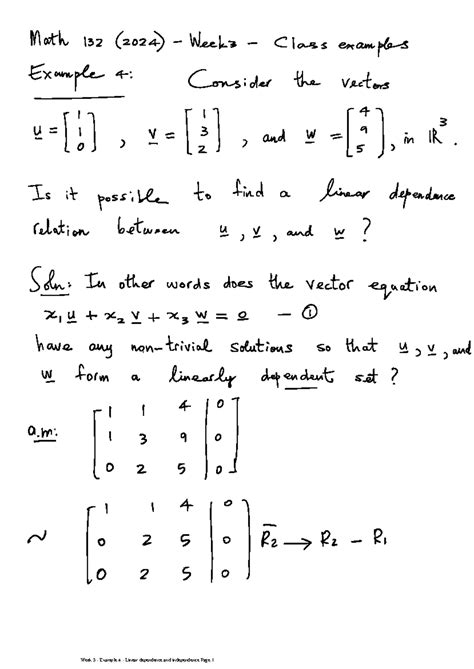 Math 132 (2024) - Week 3 - Class examples
Example 4: Consider the vectors
u = [1 1 0], v = [1 3 2], and w = [4 9 5], in ℝ³.
Is it possible to find a linear dependence
relation between u, v, and w?
Soln: In other words does the vector equation
x₁u + x₂v + x₃w = 0 - ①
have any non-trivial solutions so that u, v, and
w form a linearly dependent set?
a.m:
[1 1 4 | 0
1 3 9 | 0
0 2 5 | 0]
~ [1 1 4 | 0
0 2 5 | 0
0 2 5 | 0] R₂ → R₂ - R₁
Week 3 - Example 4 - Linear dependence and independence Page 1